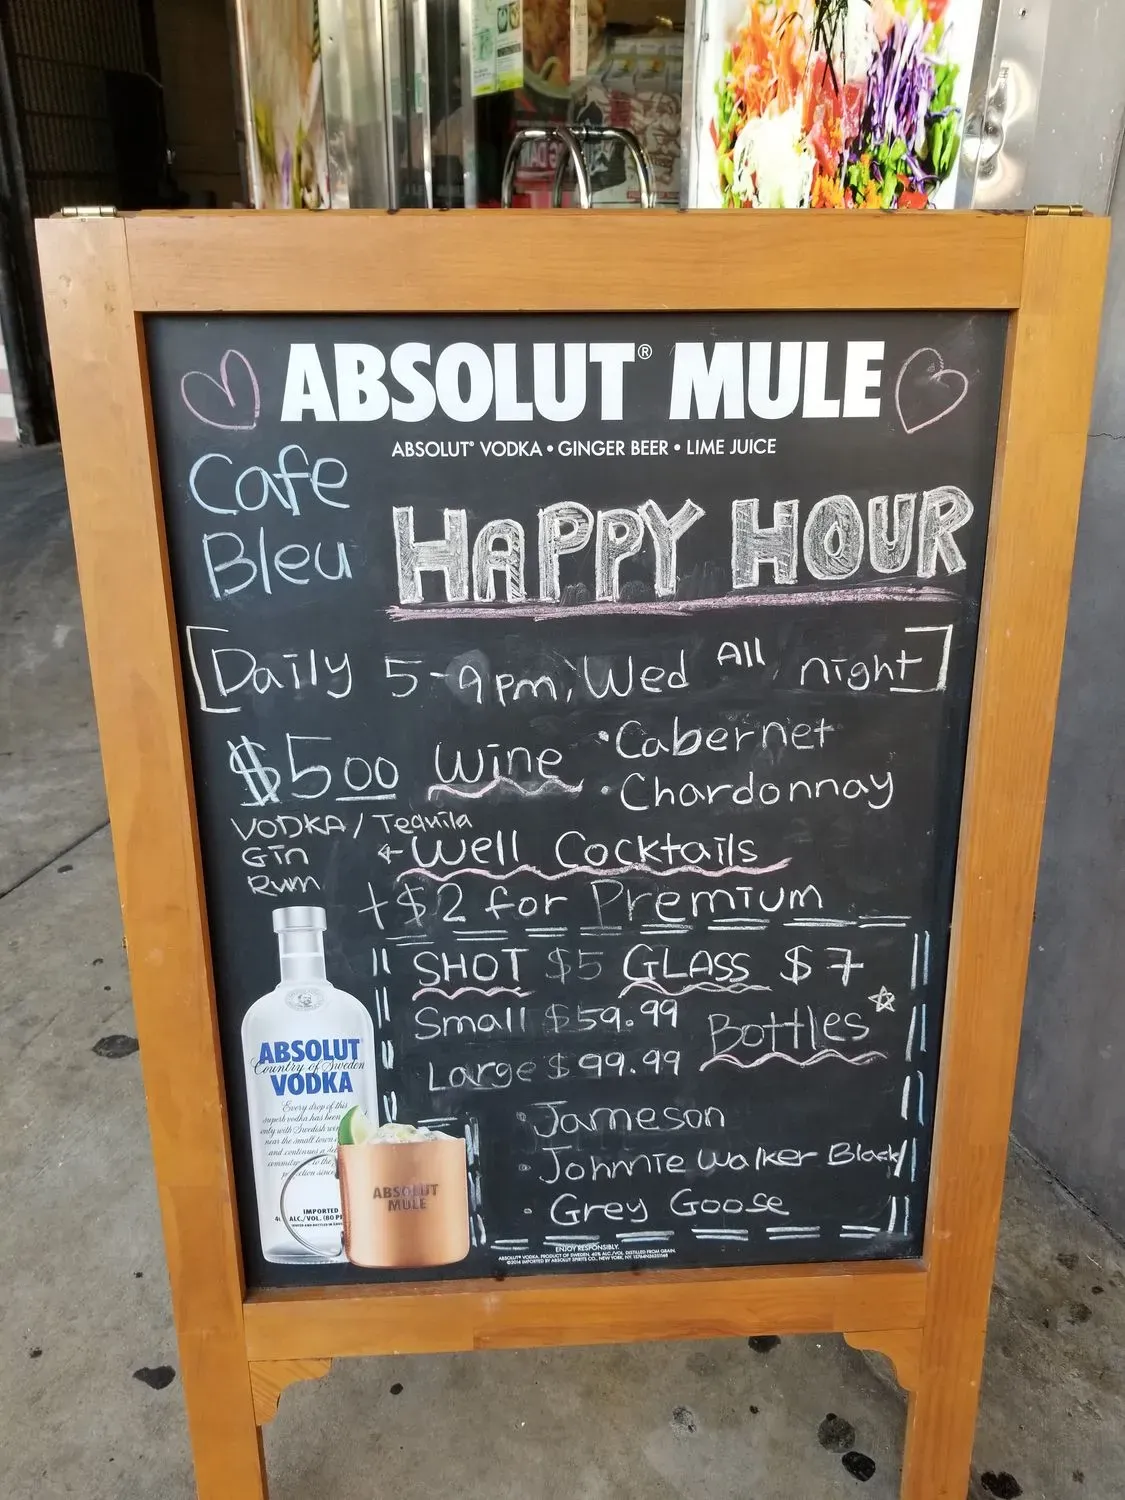 ABSOLUT® MULE
ABSOLUT® VODKA • GINGER BEER • LIME JUICE
Cafe
Bleu
HAPPY HOUR
[Daily 5-9pm, Wed All night]
$5.00 Wine • Cabernet
• Chardonnay
VODKA / Tequila
Gin
Rum
← Well Cocktails
+$2 for Premium
SHOT $5 GLASS $7
Small $59.99
Bottles
Large $99.99
• Jameson
• Johnnie Walker Black
• Grey Goose
ABSOLUT
Country of Sweden
VODKA
Every drop of this
superb vodka has been
only with Swedish
near the small town
and continues
IMPORTED
ALC./VOL. (80
ABSOLUT
MULE
ENJOY RESPONSIBLY.
ABSOLUT® VODKA. PRODUCT OF SWEDEN. 40% ALC./VOL. DISTILLED FROM GRAIN.
©2014 IMPORTED BY ABSOLUT SPIRITS CO., NEW YORK, NY.